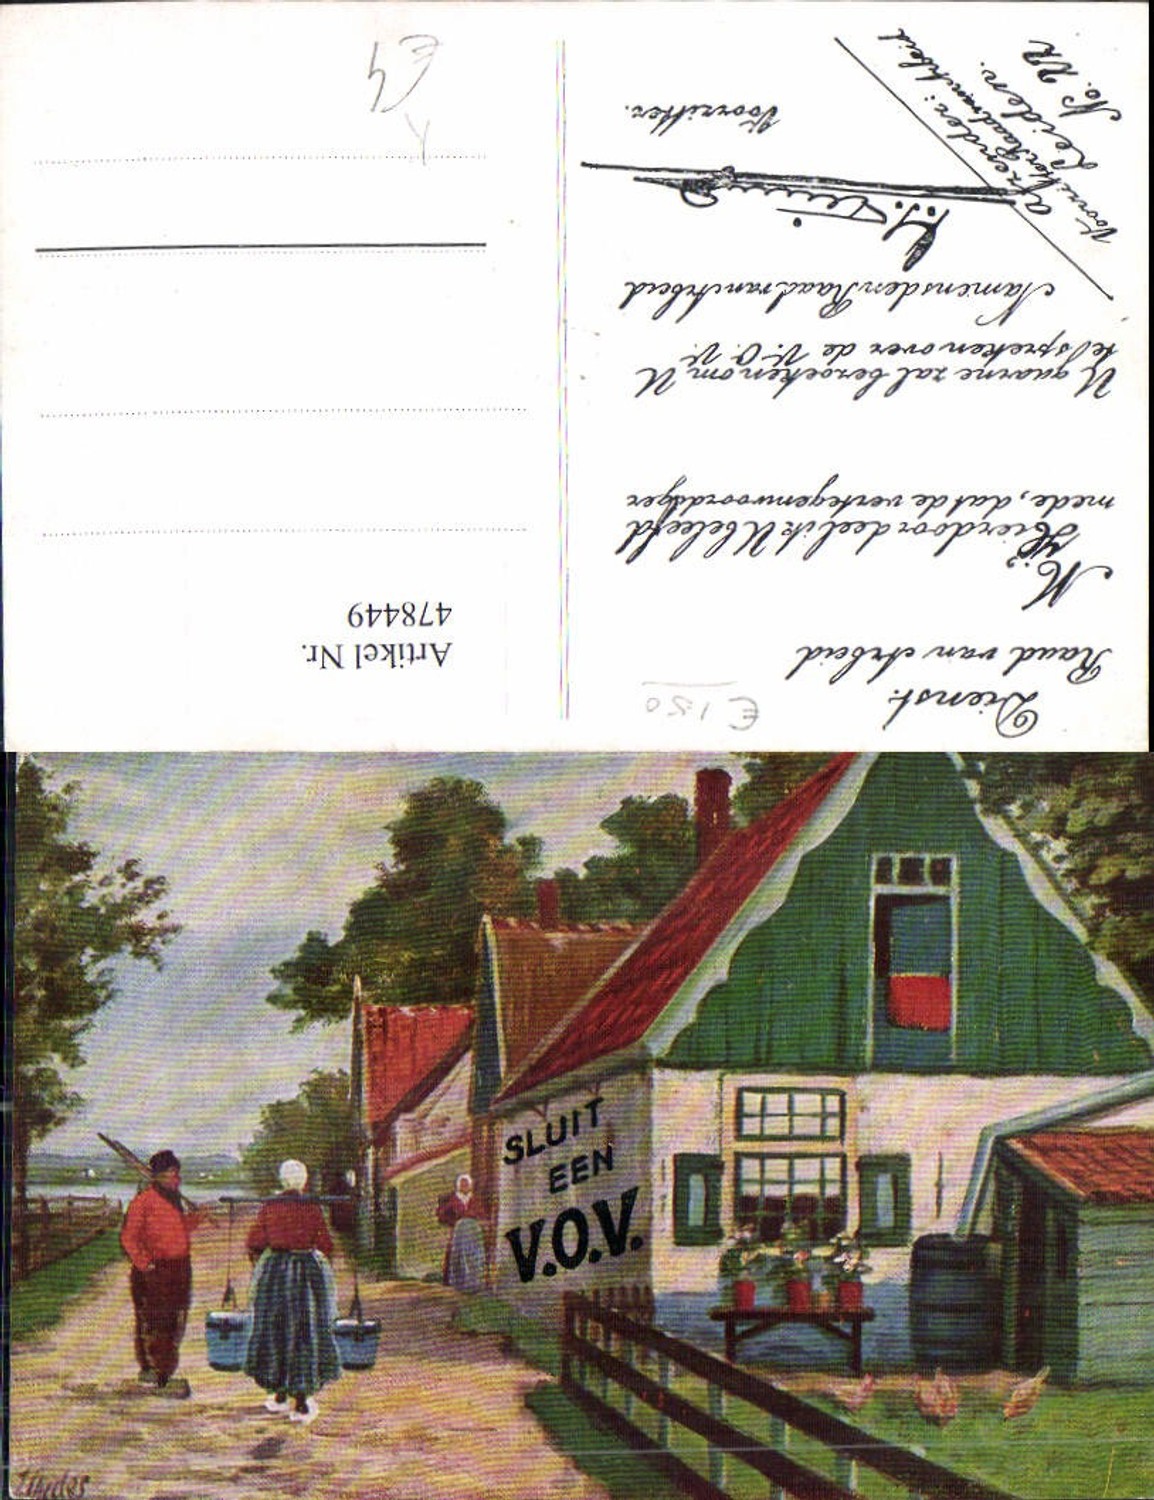 Dienst.
Raad van Arbeid
M
Hierdoor deel ik U beleefd
mede, dat de vertegenwoordiger
U gaarne zal bezoeken om U
te spreken over de V.O.V.
Namens den Raad van Arbeid
Voorzitter.
Afzender:
Voorzitter Raad van Arbeid
Leiden.
No. 22
Artikel Nr.
478449
€ 150
€4
SLUIT
EEN
V.O.V.